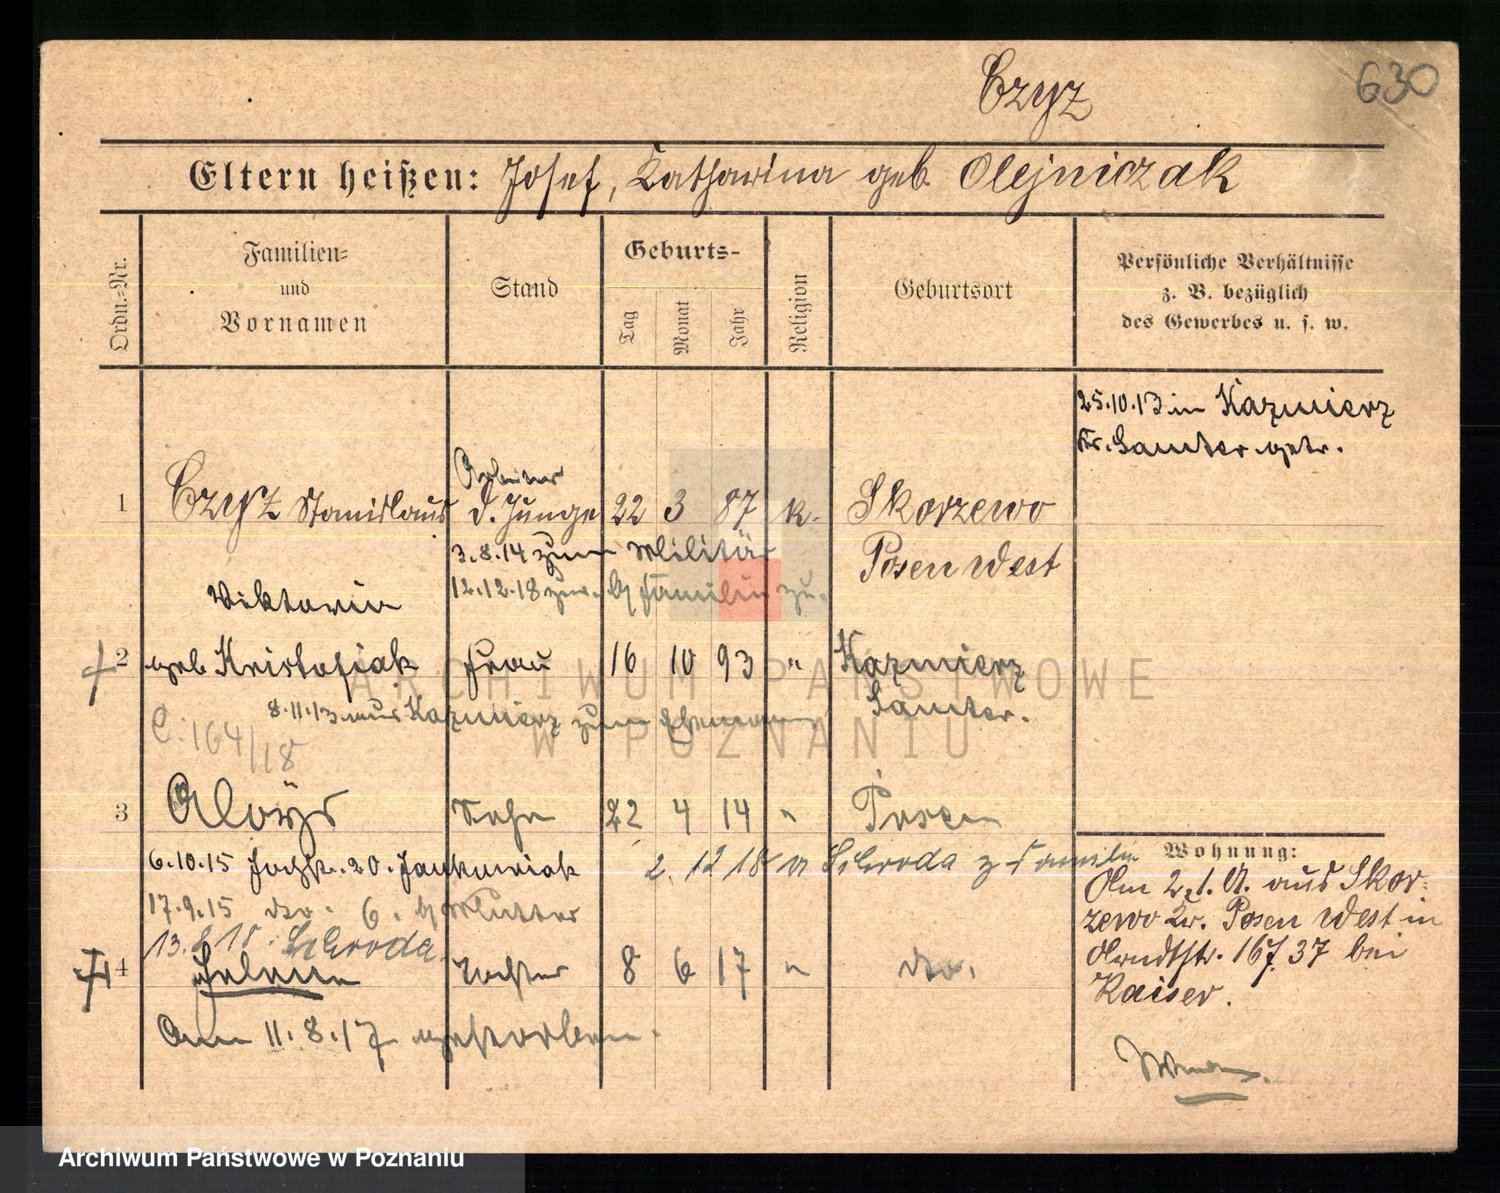 Czyz
630
Eltern heißen: Josef, Katharina geb Olejniczak
Ordn.=Nr.
Familien=
und
Vornamen
Stand
Geburts-
Tag
Monat
Jahr
Religion
Geburtsort
Persönliche Verhältnisse
z. B. bezüglich
des Gewerbes u. s. w.
25.10.13 in Kazmierz
Kr. Samter getr.
Arbeiter
1 Czyz Stanislaus d. Junge 22 3 87 k. Skorzewo
3.8.14 zum Militär
Posen West
12.12.18 zur. Familie
Viktoria
2 geb Kristofiak Frau 16 10 93 " Kazmierz
8.11.13 aus Kazmierz zum Ehemann
Samter.
C. 164/18
3 Aloys Sohn 22 4 14 " Posen
6.10.15 20. Jankowiak
2. 12 18 a Schroda z Familie
17.9.15 do. 6. b/ Mutter
13.8 18. Schroda
4 Helene Tochter 8 6 17 " do.
Am 11.8.17 gestorben.
Wohnung:
Am 2.1. A. aus Skor=
zewo Kr. Posen West in
Arndtstr. 16 f. 37 bei
Kaiser.
ARCHIWUM PAŃSTWOWE
W POZNANIU
Archiwum Państwowe w Poznaniu